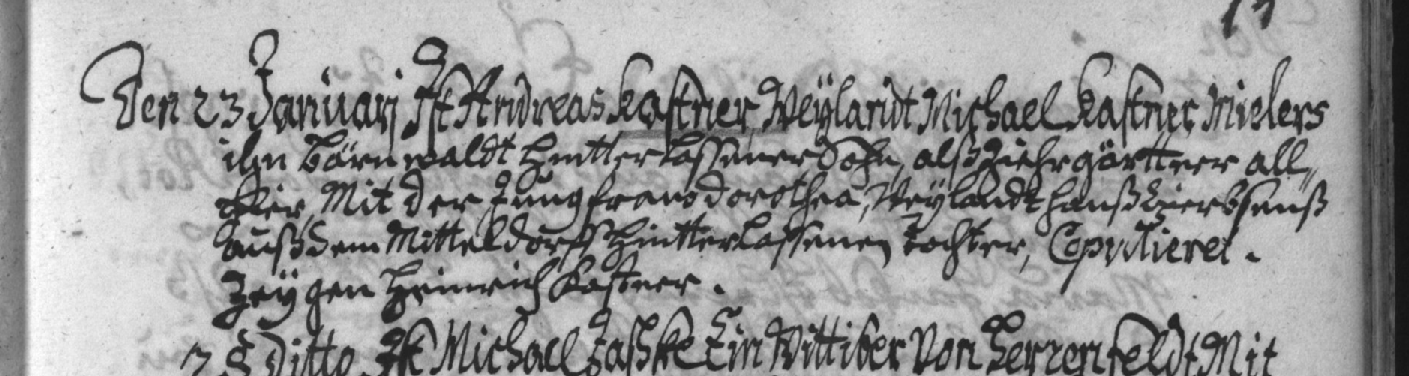 Den 23 Januarj Jst Andreas Kastner, Weÿlandt Michael Kastner Mielers
ihn Bärnwaldt hintterlassener Sohn, alß Ziehrgärttner all„
hier, Mit der Jungfrau Dorothea, Weÿlandt Hanß
auß dem Mitteldorff hintterlassenen Tochter, Copulieret.
Zeÿgen Heinrich Kastner.
28 Ditto Jst Michael Jaschke Ein Wittiber Von Herrenfeldt Mit